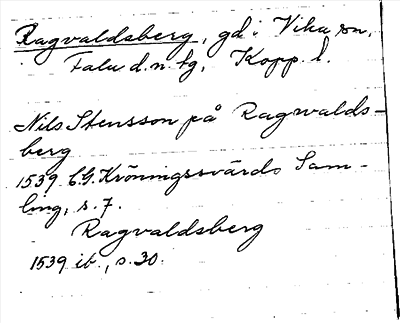 Ragvaldsberg, gd i Vika sn,
Falu d.n. tg, Kopp. l.
Nils Stensson på Ragwalds-
berg
1539 C.G. Kröningssvärds Sam-
ling, s. 7.
Ragvaldsberg
1539 ib., s. 30.